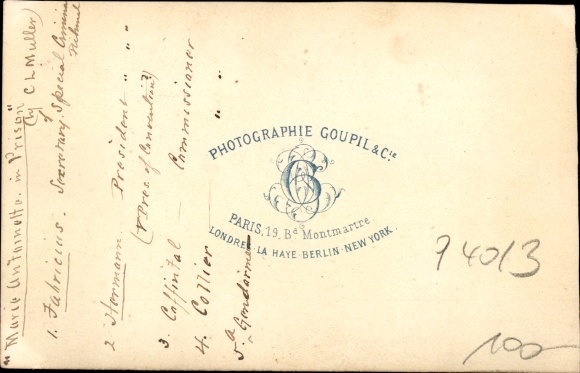 "Marie Antoinette in Prison"
(by C L Muller)
1. Fabricius. Secretary. Special Criminal
Tribunal
2 Hermann President " " "
(& Pres of Convention?)
3. Coffintal — Commissioner
4. Collier " "
5. a Gendarme
PHOTOGRAPHIE GOUPIL & Cie
GC
PARIS, 19, Bd Montmartre.
LONDRES · LA HAYE · BERLIN · NEW YORK.
74013
100